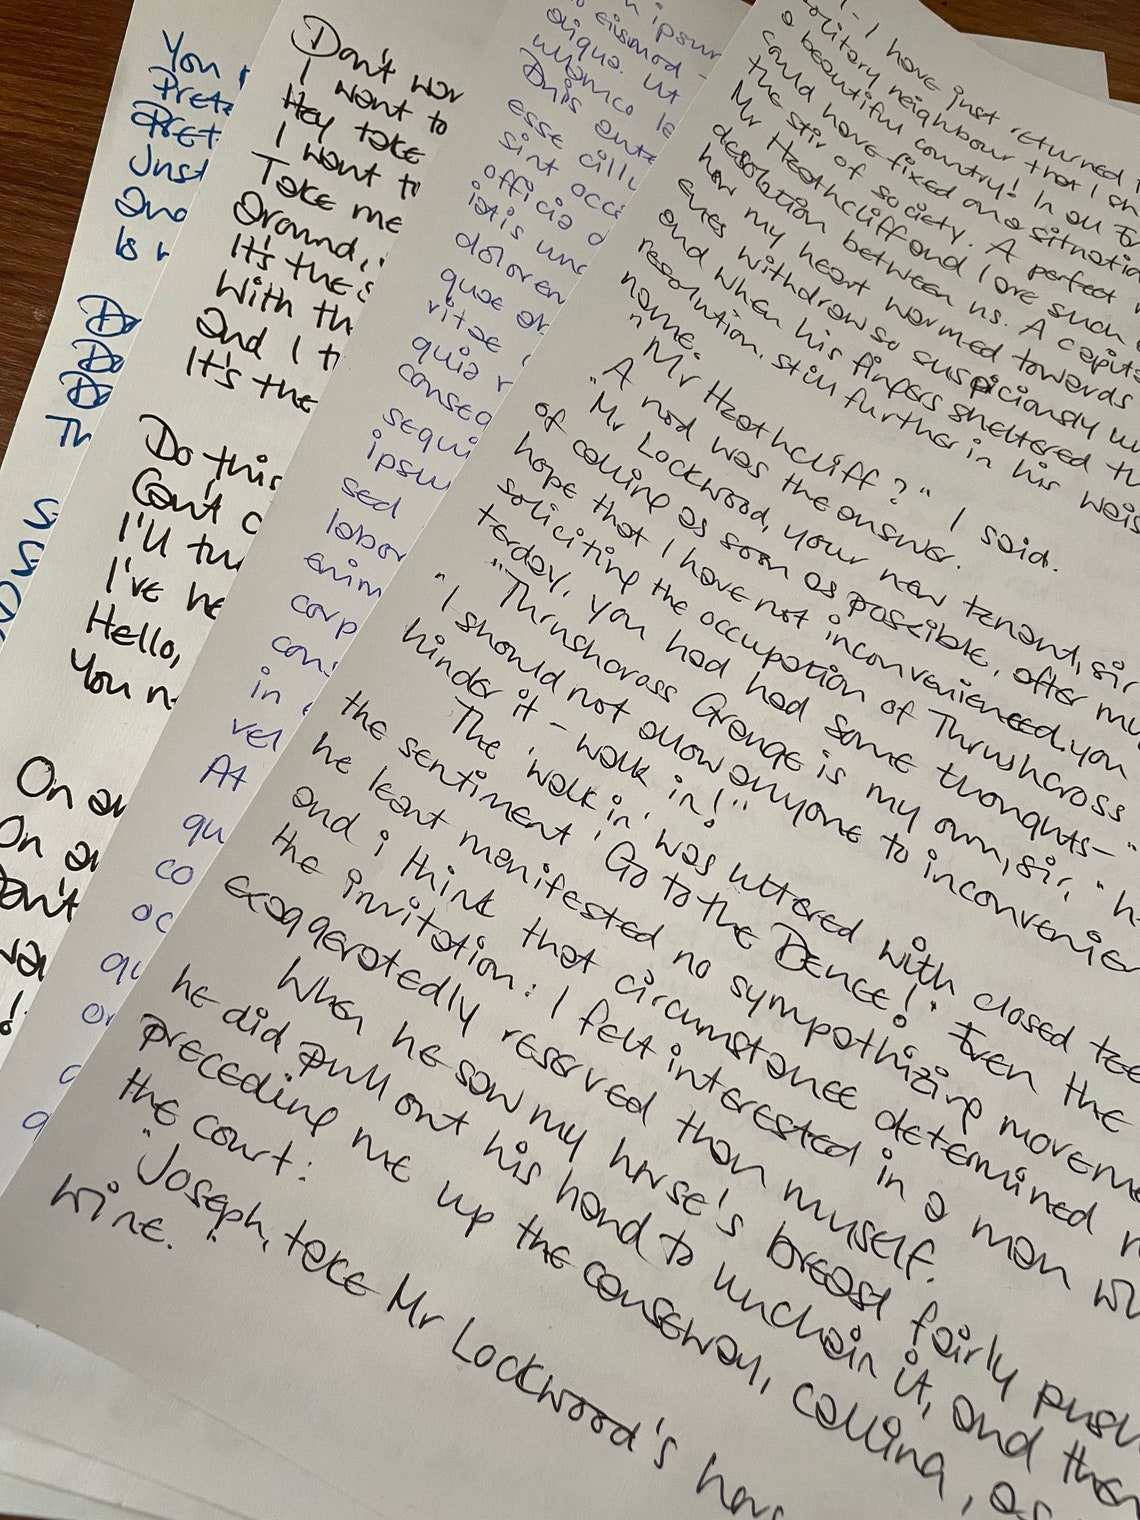 You
Pret
Pret
Just
and
Is
Th
Don't wor
I want to
Hey take
I want to
Take me
around,
It's the s
With th
and I t
It's the
Do this
Can't c
I'll tu
I've he
Hello,
You n
On an
On an
Don't
ipsum
eiusmod
aliqua. Ut
ullamco la
Duis aute
esse cillu
sint occ
officia d
iatis und
dolorem
quae ab
vitae
quia
conseq
sequi
ipsu
sed
labor
enim
corp
cons
in
vel
At
qu
co
oc
qu
I have just returned
solitary neighbour that I sh
a beautiful country! In all En
could have fixed on a situatio
the stir of society. A perfect
Mr Heathcliff and I are such
desolation between us. A capita
how my heart warmed towards
eyes withdraw so suspiciously u
and when his fingers sheltered th
resolution. still further in his wais
name.
"Mr Heathcliff?" I said.
A nod was the answer.
"Mr Lockwood, your new tenant, sir
of calling as soon as possible, after my
hope that I have not inconvenienced you
soliciting the occupation of Thrushcross
terday, you had had some thoughts—"
"Thrushcross Grange is my own, sir," h
"I should not allow anyone to inconvenien
hinder it – walk in!"
The 'walk in' was uttered with closed tee
the sentiment 'Go to the Dence!' Even the
he leant manifested no sympathizing moveme
and i think that circumstance determined
the invitation: I felt interested in a man wh
exaggeratedly reserved than muself.
When he saw my horse's breast fairly push
he did pull ont his hand to unchain it, and then
preceding me up the conseway, calling, as
the court:
"Joseph, take Mr Lockwood's hors
wine."